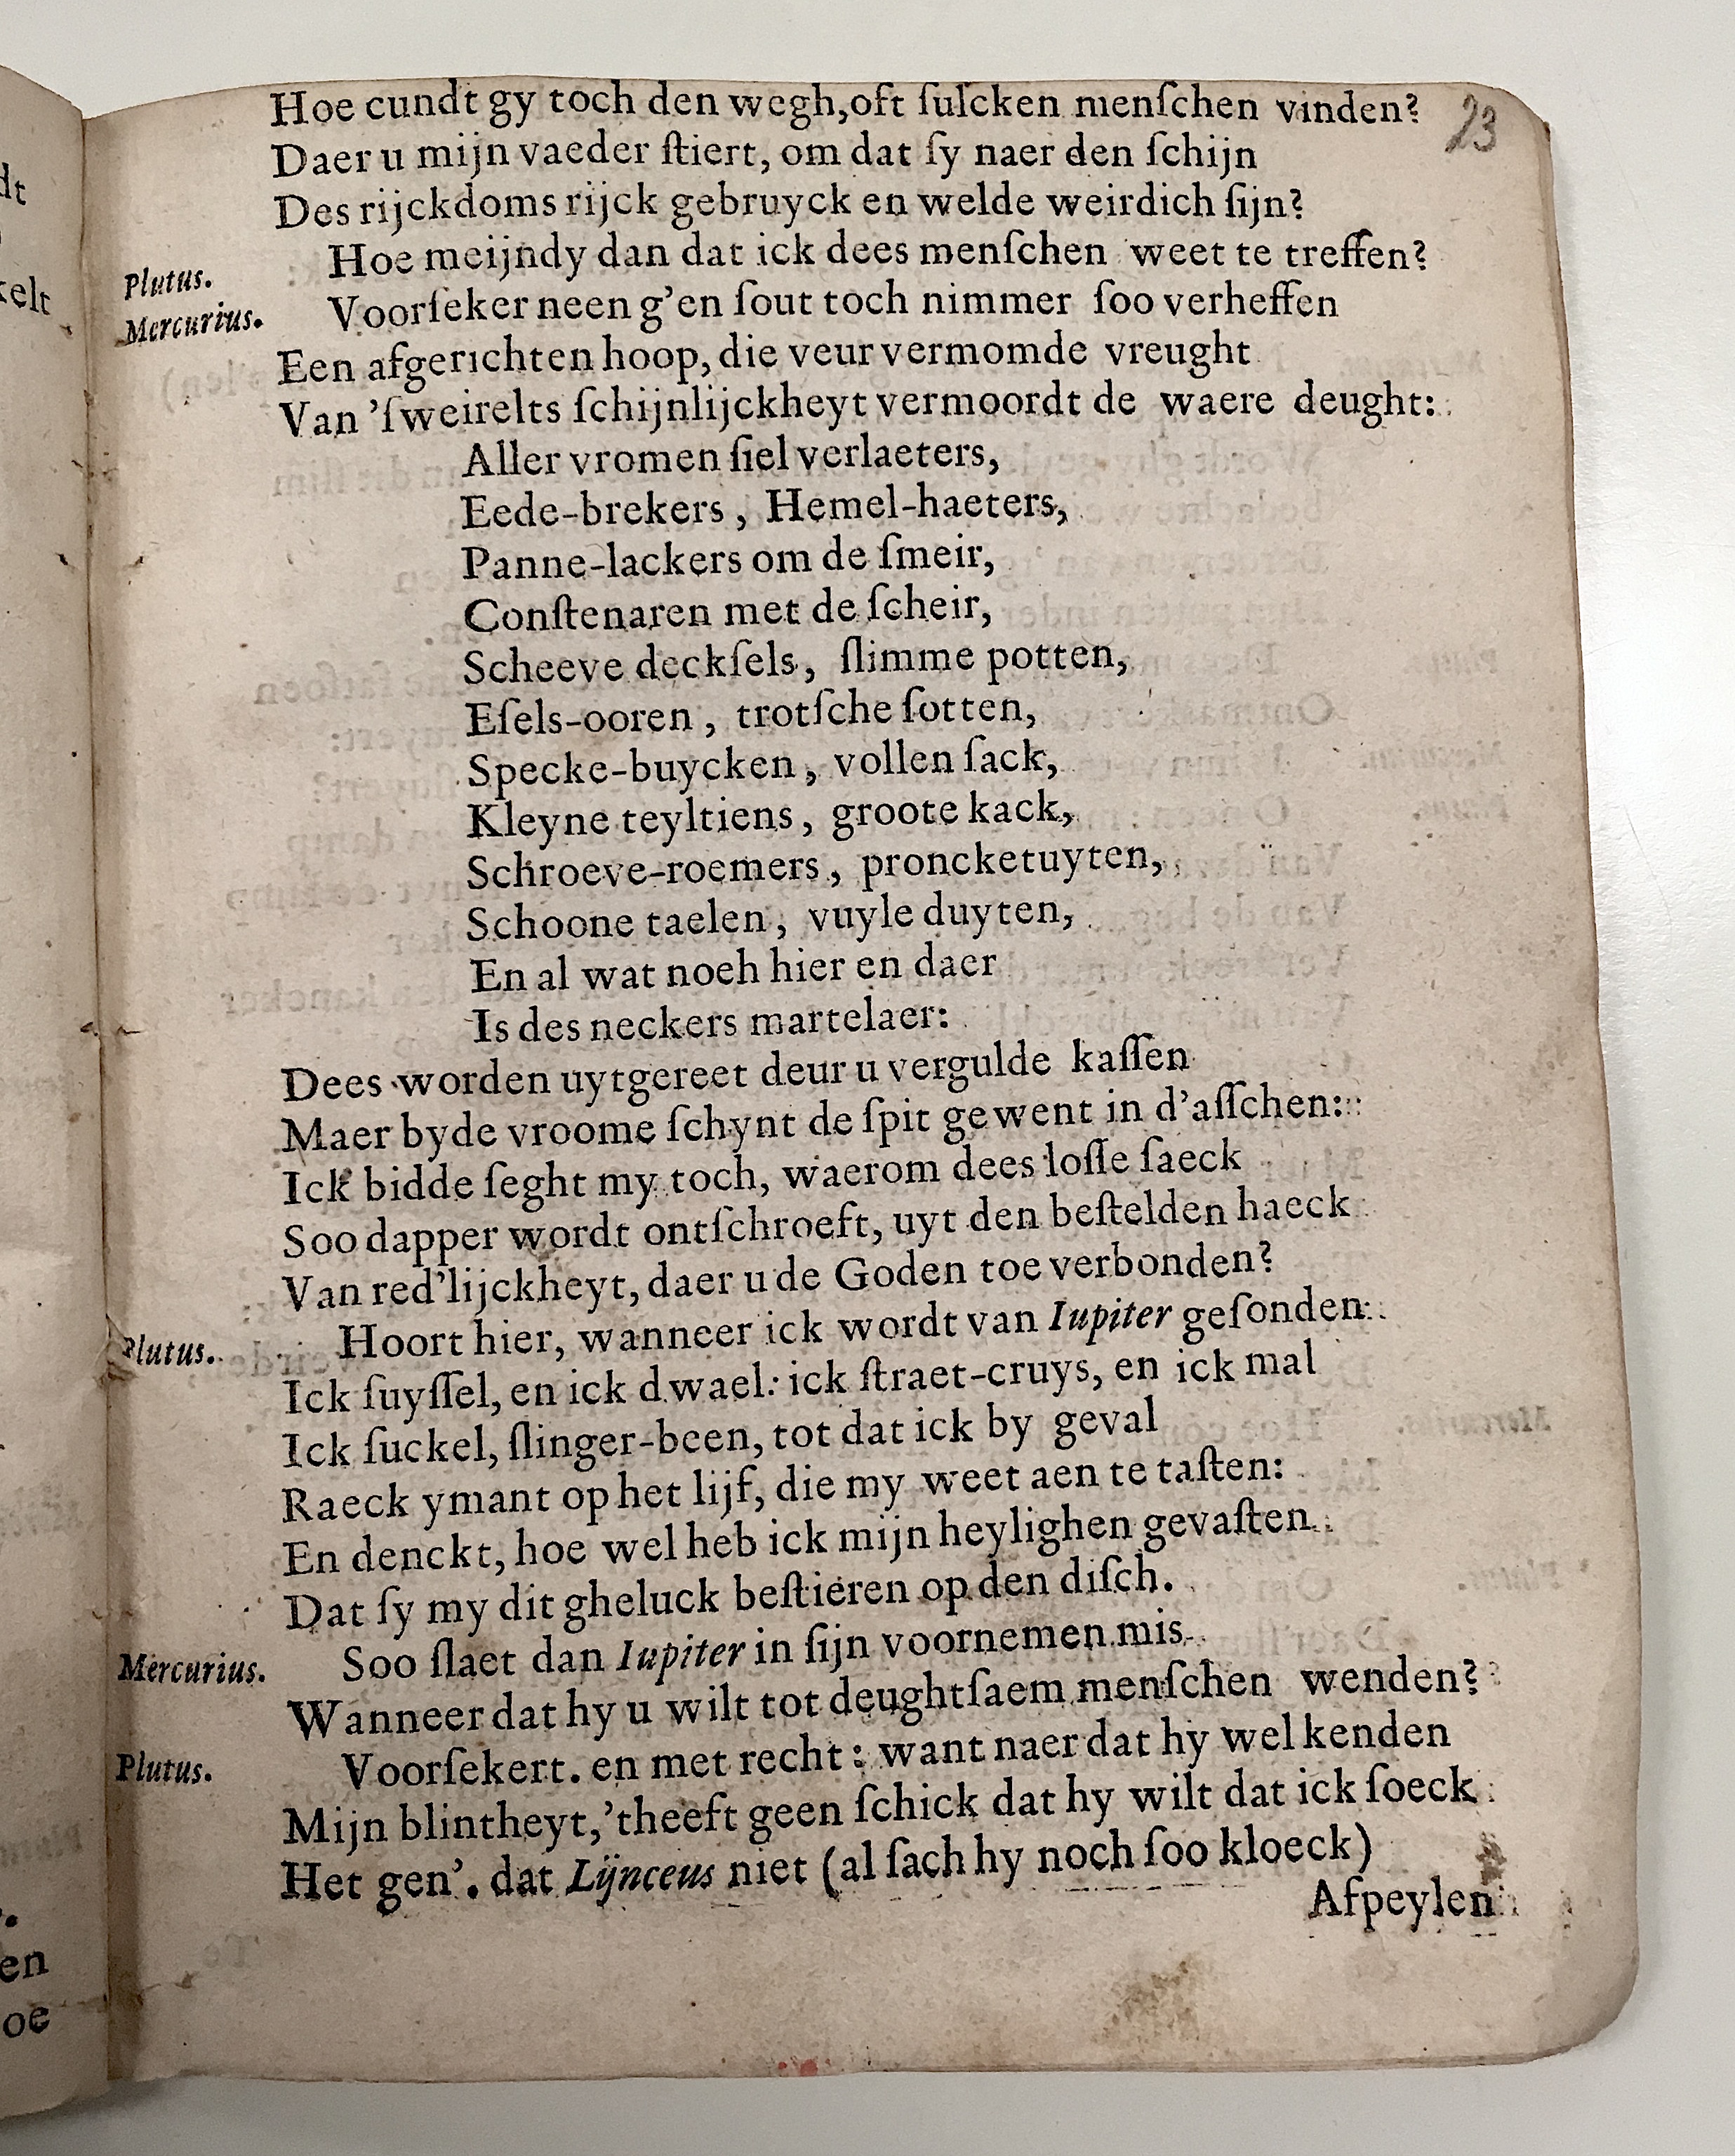 23
Hoe cundt gy toch den wegh, oft ſulcken menſchen vinden?
Daer u mijn vaeder ſtiert, om dat ſy naer den ſchijn
Des rijckdoms rijck gebruyck en welde weirdich ſijn?
Plutus. Hoe meijndy dan dat ick dees menſchen weet te treffen?
Mercurius. Voorſeker neen g'en ſout toch nimmer ſoo verheffen
Een afgerichten hoop, die veur vermomde vreught
Van 'ſweirelts ſchijnlijckheyt vermoordt de waere deught:
Aller vromen ſiel verlaeters,
Eede-brekers, Hemel-haeters,
Panne-lackers om de ſmeir,
Conſtenaren met de ſcheir,
Scheeve deckſels, ſlimme potten,
Eſels-ooren, trotſche ſotten,
Specke-buycken, vollen ſack,
Kleyne teyltiens, groote kack,
Schroeve-roemers, proncketuyten,
Schoone taelen, vuyle duyten,
En al wat noeh hier en daer
Is des neckers martelaer:
Dees worden uytgereet deur u vergulde kaſſen
Maer byde vroome ſchynt de ſpit gewent in d'aſſchen:
Ick bidde ſeght my toch, waerom dees loſſe ſaeck
Soo dapper wordt ontſchroeft, uyt den beſtelden haeck
Van red'lijckheyt, daer u de Goden toe verbonden?
Plutus. Hoort hier, wanneer ick wordt van Iupiter geſonden:
Ick ſuyſſel, en ick dwael: ick ſtraet-cruys, en ick mal
Ick ſuckel, ſlinger-been, tot dat ick by geval
Raeck ymant op het lijf, die my weet aen te taſten:
En denckt, hoe wel heb ick mijn heylighen gevaſten
Dat ſy my dit gheluck beſtieren op den diſch.
Mercurius. Soo ſlaet dan Iupiter in ſijn voornemen mis
Wanneer dat hy u wilt tot deughtſaem menſchen wenden?
Plutus. Voorſekert. en met recht: want naer dat hy wel kenden
Mijn blintheyt, 'theeft geen ſchick dat hy wilt dat ick ſoeck
Het gen'. dat Lijnceus niet (al ſach hy noch ſoo kloeck)
Afpeylen
dt
kelt
en
oe